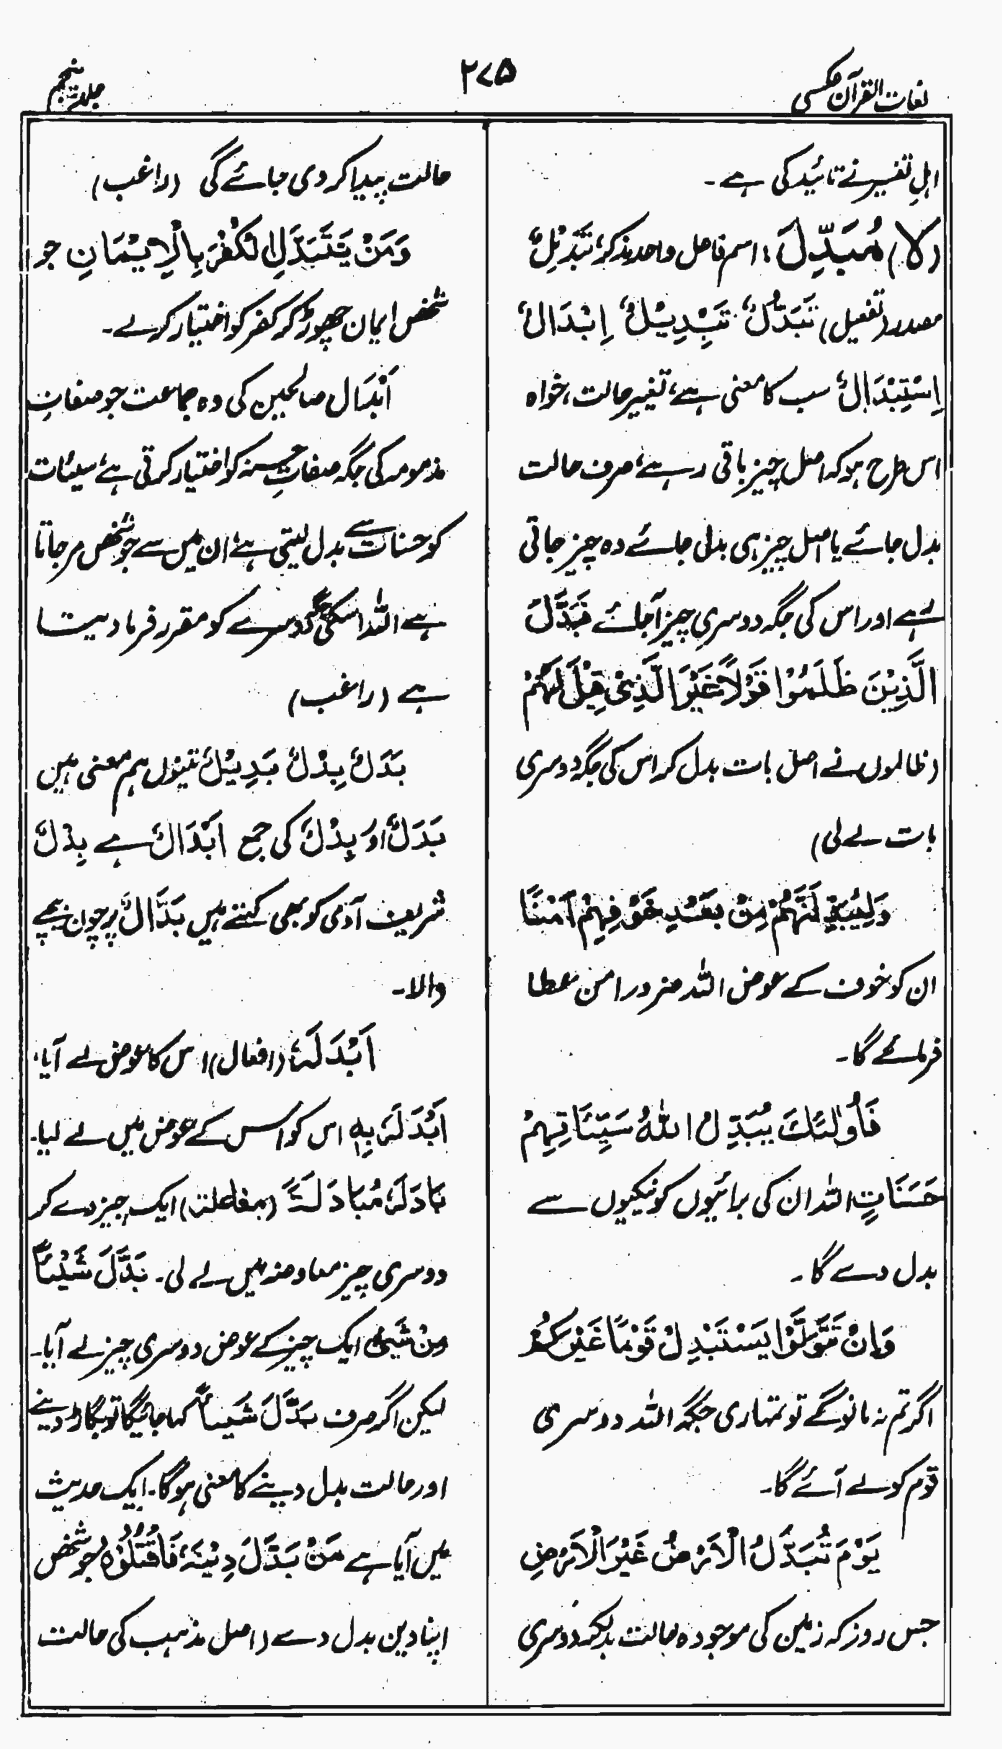 لغات القرآن عکسی
۲۷۵
جلد پنجم
اہلِ تفسیر نے تائید کی ہے۔
(لَا) مُبَدِّلَ: اسم فاعل واحد مذکر، تَبْدِیْلٌ
مصدر (تفعیل) تَبَدُّلٌ، تَبْدِیْلٌ، اِبْدَالٌ،
اِسْتِبْدَالٌ سب کا معنی ہے، تغیر حالت، خواہ
اس طرح ہو کہ اصل چیز باقی رہے، صرف حالت
بدل جائے یا اصل چیز ہی بدلی جائے وہ چیز جاتی
رہے اور اس کی جگہ دوسری چیز آجائے فَبَدَّلَ
الَّذِیْنَ ظَلَمُوْا قَوْلًا غَیْرَ الَّذِیْ قِیْلَ لَهُمْ
(ظالموں نے اصل بات بدل کر اس کی جگہ دوسری
بات لے لی)
وَلَیُبَدِّلَنَّهُمْ مِنْ بَعْدِ خَوْفِهِمْ اَمْنًا
ان کو خوف کے عوض اللہ ضرور امن عطا
فرمائے گا۔
فَاُولٰئِكَ یُبَدِّلُ اللّٰهُ سَیِّئَاتِهِمْ
حَسَنَاتٍ اللہ ان کی برائیوں کو نیکیوں سے
بدل دے گا۔
وَاِنْ تَتَوَلَّوْا یَسْتَبْدِلْ قَوْمًا غَیْرَكُمْ
اگر تم نہ مانو گے تو تمہاری جگہ اللہ دوسری
قوم کو لے آئے گا۔
یَوْمَ تُبَدَّلُ الْاَرْضُ غَیْرَ الْاَرْضِ
جس روز کہ زمین کی موجودہ حالت بدلکر دوسری
حالت پیدا کر دی جائے گی (راغب)
وَمَنْ یَّتَبَدَّلِ الْكُفْرَ بِالْاِیْمَانِ جو
شخص ایمان چھوڑ کر کفر کو اختیار کرلے۔
اَبْدَال صالحین کی وہ جماعت جو صفاتِ
مذمومہ کی جگہ صفاتِ حسنہ کو اختیار کرتی ہے، سیئات
کو حسنات سے بدل لیتی ہے، ان میں سے جو شخص مرجاتا
ہے اللہ اسکی جگہ دوسرے کو مقرر فرما دیتا
ہے (راغب)
بَدَلٌ، بِدْلٌ، بَدِیْلٌ تینوں ہم معنی ہیں
بَدَلٌ اور بِدْلٌ کی جمع اَبْدَالٌ ہے بِدْلٌ
شریف آدمی کو بھی کہتے ہیں بَدَّالٌ پرچون بیچنے
والا۔
اَبْدَلَهٗ (افعال) اس کا عوض لے آیا،
اَبْدَلَهٗ بِهٖ اس کو اس کے عوض میں لے لیا۔
بَادَلَهٗ مُبَادَلَةً (مفاعلت) ایک چیز دے کر
دوسری چیز معاوضہ میں لے لی۔ بَدَّلَ شَیْئًا
مِنْ شَیْءٍ ایک چیز کے عوض دوسری چیز لے آیا۔
لیکن اگر صرف بَدَّلَ شَیْئًا کہا جائیگا تو بگاڑ دینے
اور حالت بدل دینے کا معنی ہوگا۔ ایک حدیث
میں آیا ہے مَنْ بَدَّلَ دِیْنَهٗ فَاقْتُلُوْهُ جو شخص
اپنا دین بدل دے (اصل مذہب کی حالت